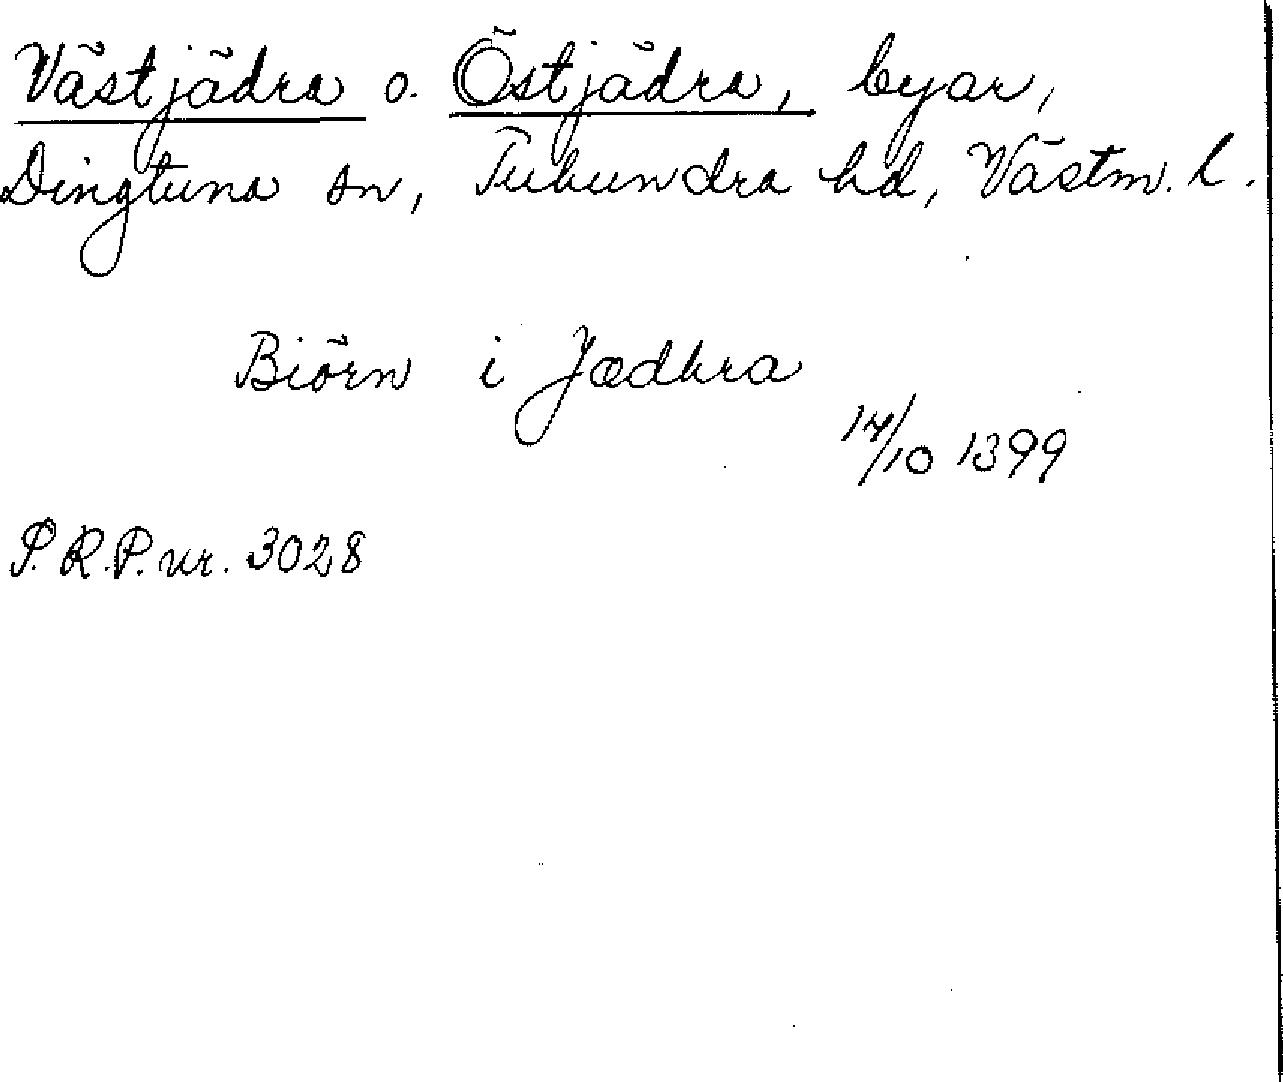 Västjädra o. Östjädra, byar,
Dingtuna sn, Tuhundra hd, Västm. l.
Biörn i Jædhra
14/10 1399
S.R.P. nr. 3028